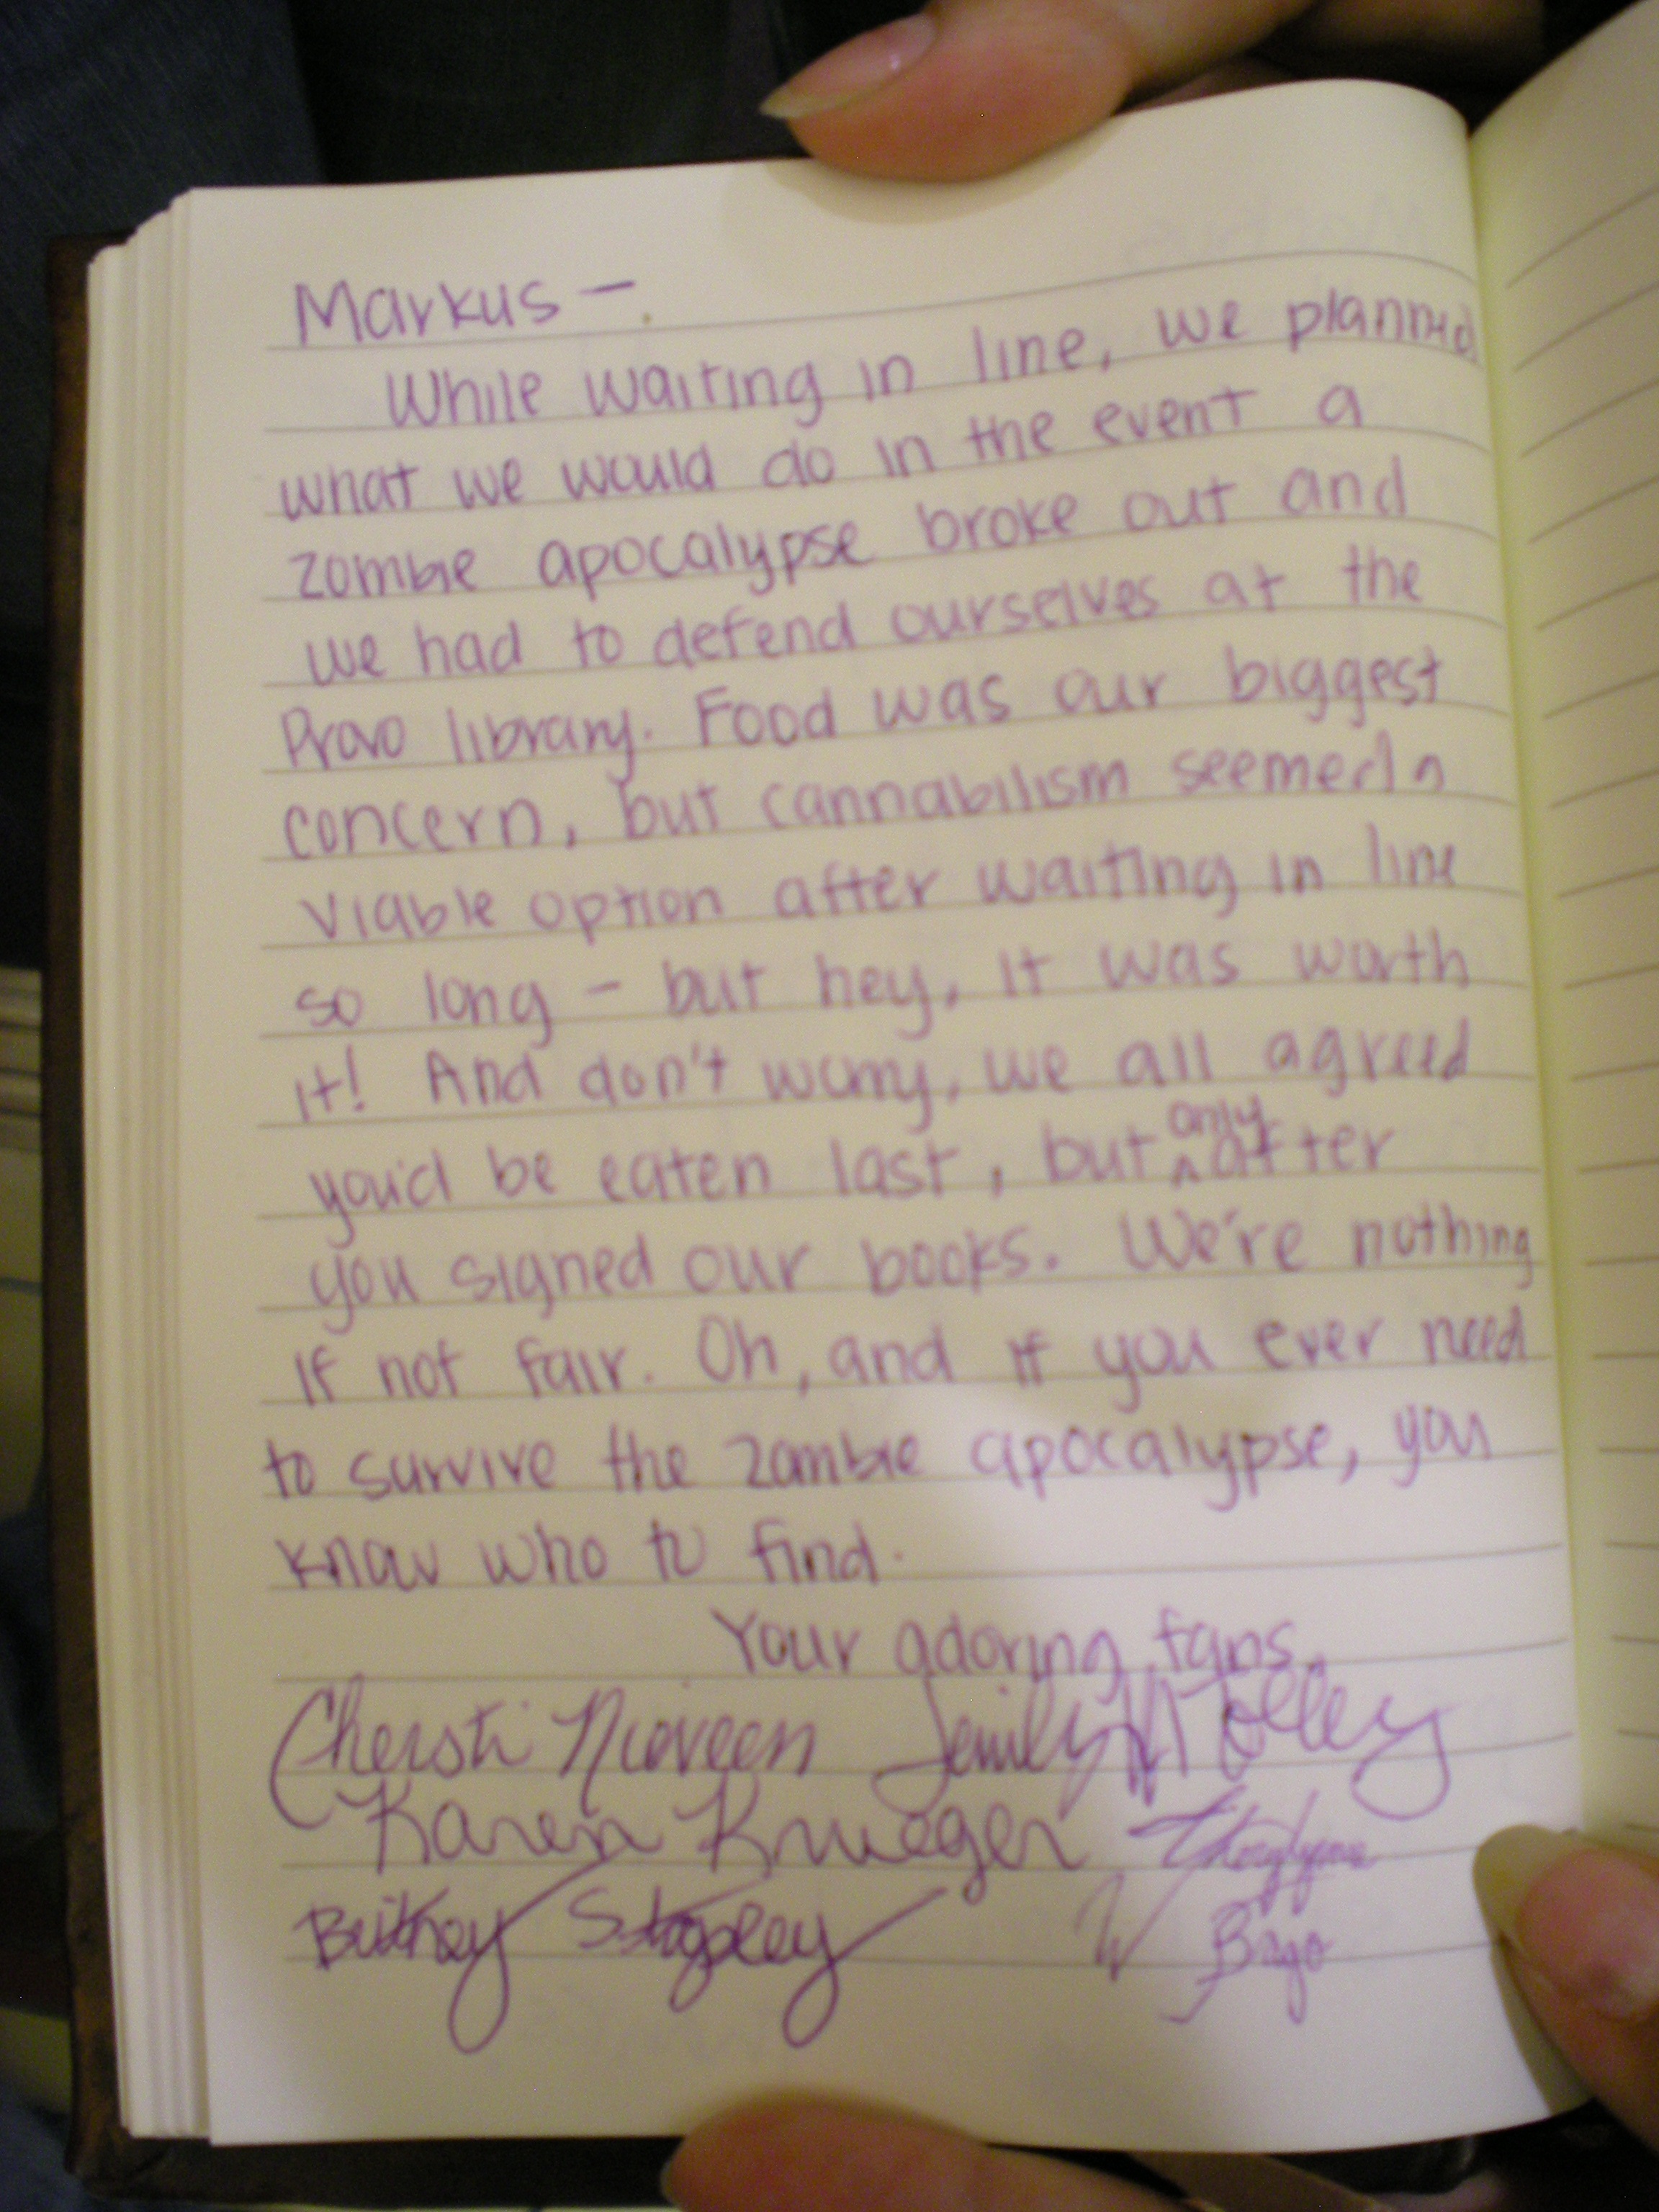 Markus –
While waiting in line, we planned
what we would do in the event a
zombie apocalypse broke out and
we had to defend ourselves at the
Provo library. Food was our biggest
concern, but cannabilism seemed a
viable option after waiting in line
so long – but hey, it was worth
it! And don't worry, we all agreed
you'd be eaten last, but only after
you signed our books. We're nothing
if not fair. Oh, and if you ever need
to survive the zombie apocalypse, you
know who to find.
Your adoring fans,
Chersti Nieveen Jemily M Tolley
Karen Krueger
Britney Stapley Bago